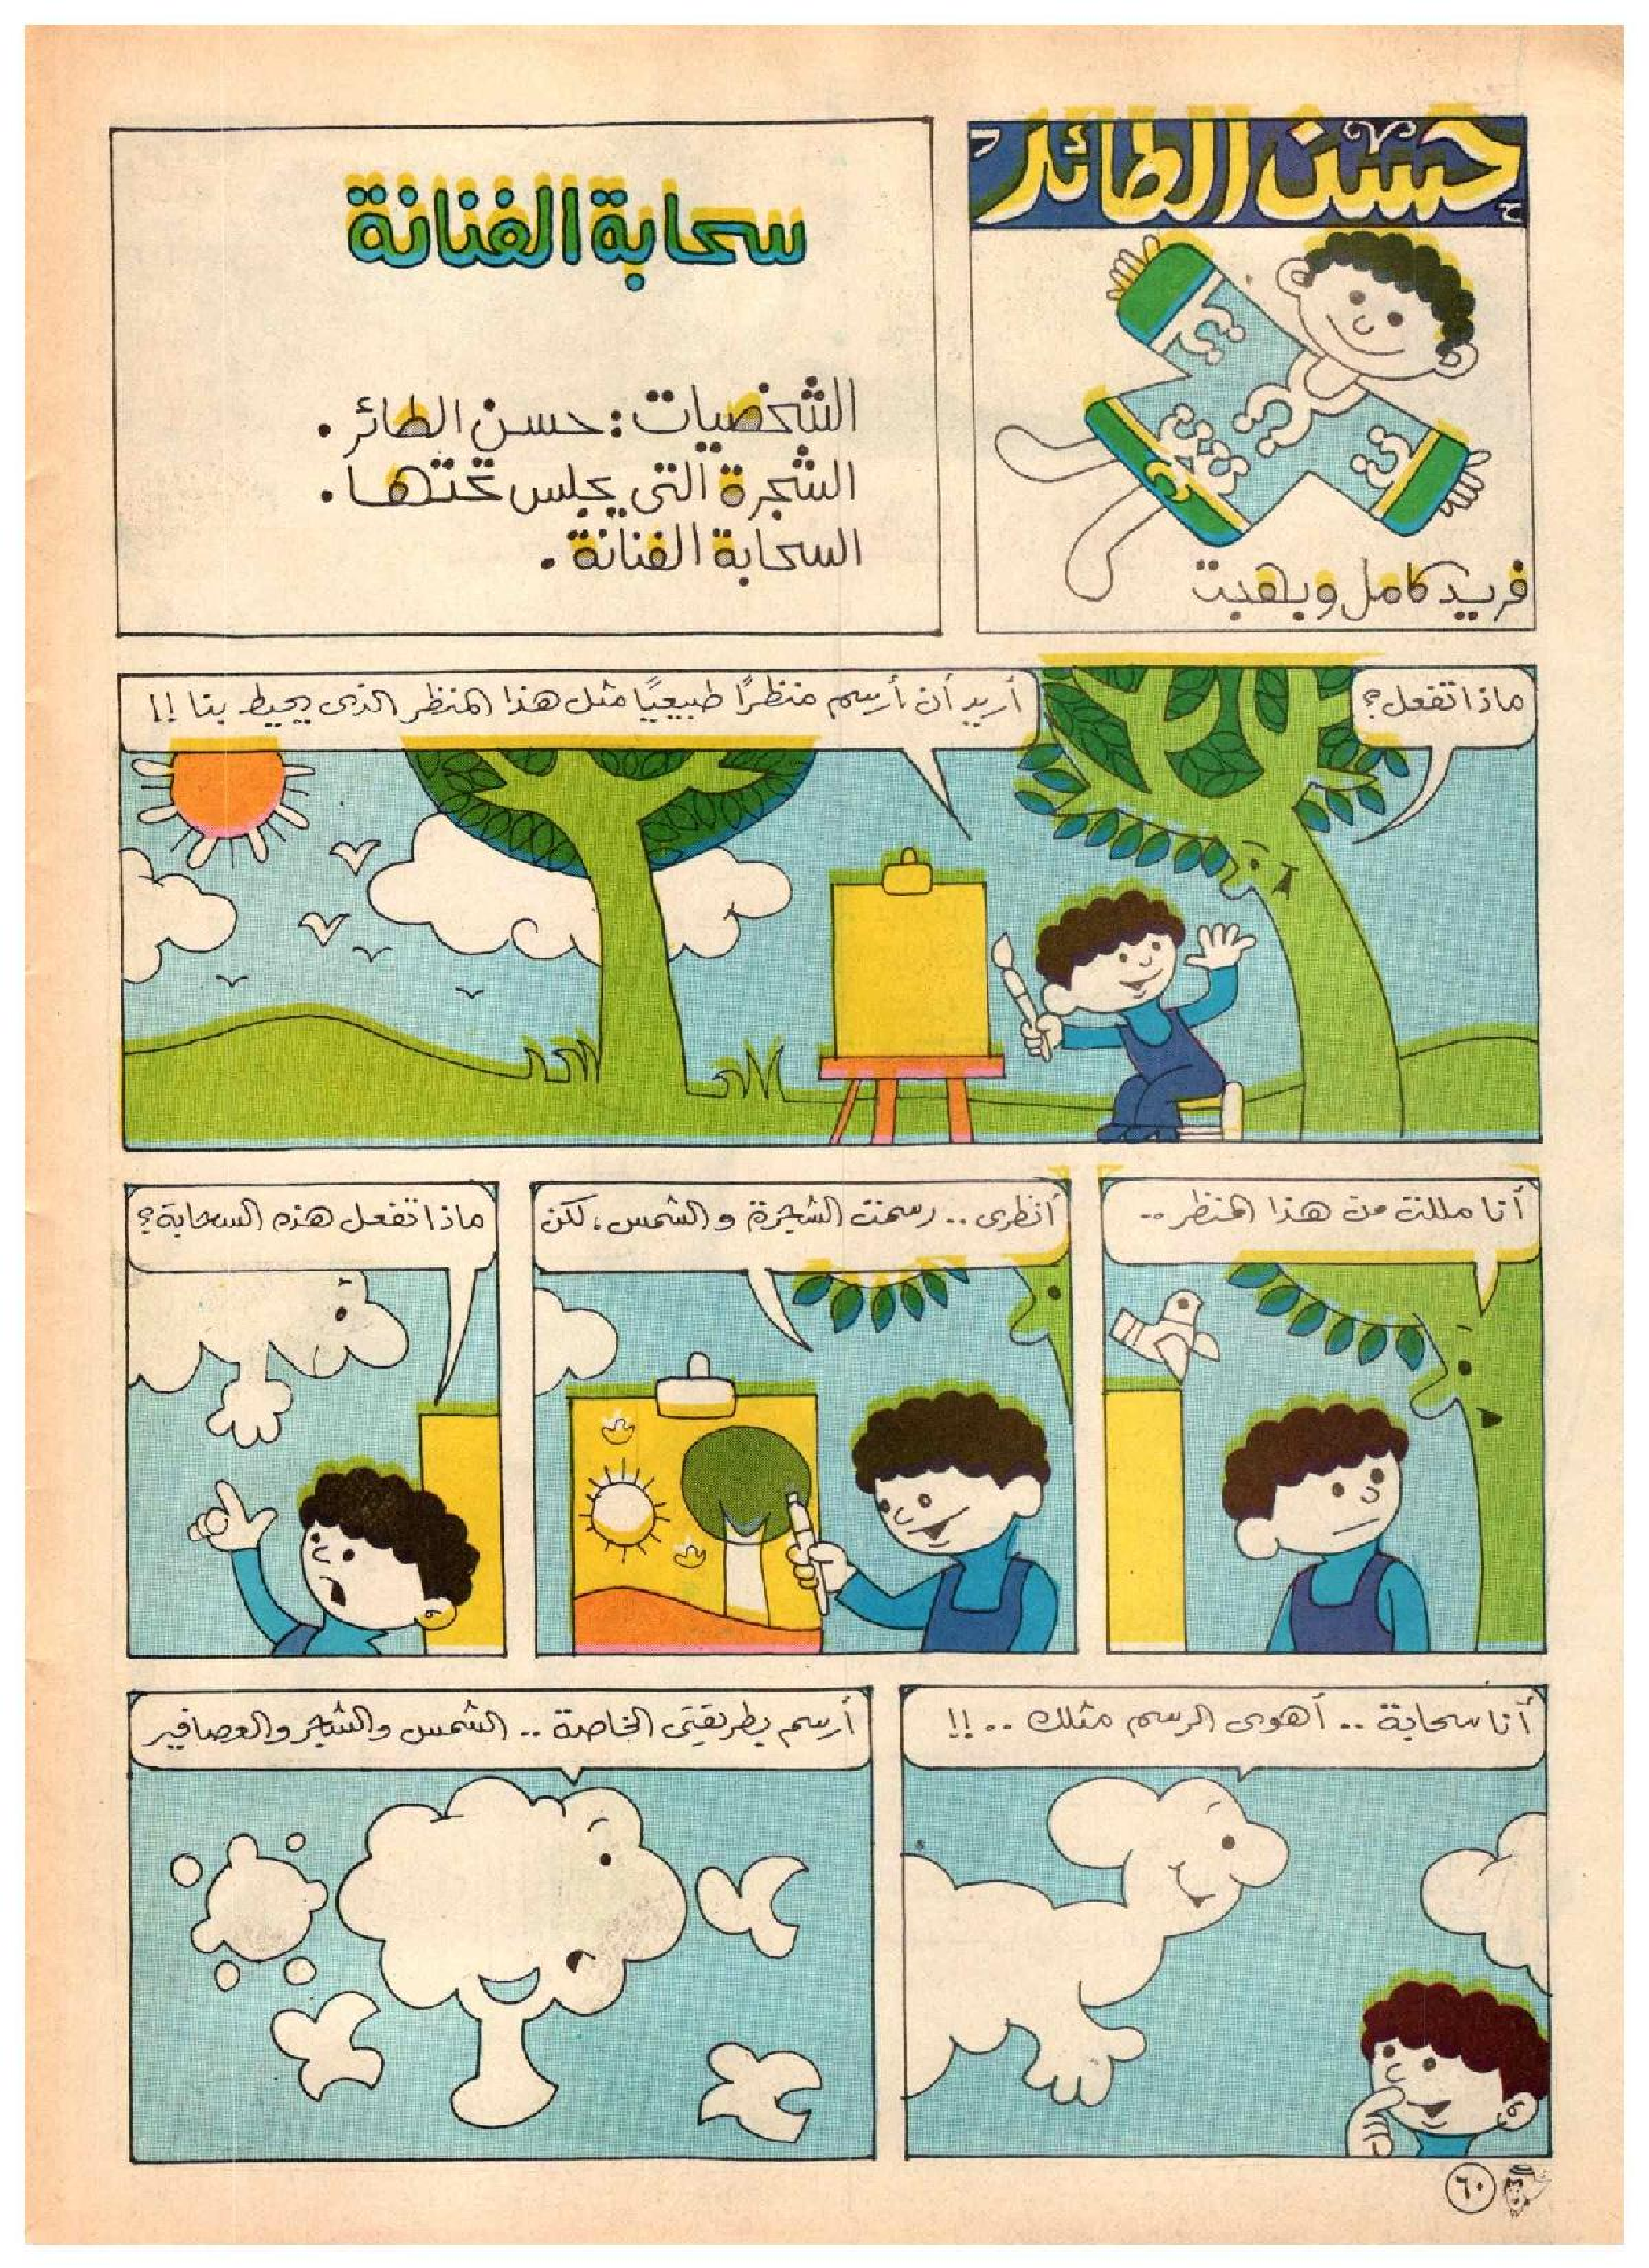 حسن الطائر
فريد كامل وبهجت
سحابة الفنانة
الشخصيات: حسن الطائر.
الشجرة التى يجلس تحتها.
السحابة الفنانة.
ماذا تفعل؟
أريد أن أرسم منظرًا طبيعيًا مثل هذا المنظر الذى يحيط بنا !!
أنا مللت من هذا المنظر..
أنظرى.. رسمت الشجرة و الشمس، لكن
ماذا تفعل هذه السحابة؟
أنا سحابة .. أهوى الرسم مثلك ..!!
أرسم بطريقتى الخاصة .. الشمس والشجر والعصافير
٦٠